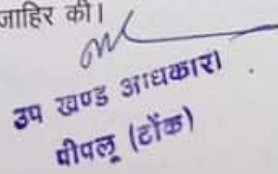 जाहिर की।
उप खण्ड अधिकारी
पीपलू (टोंक)